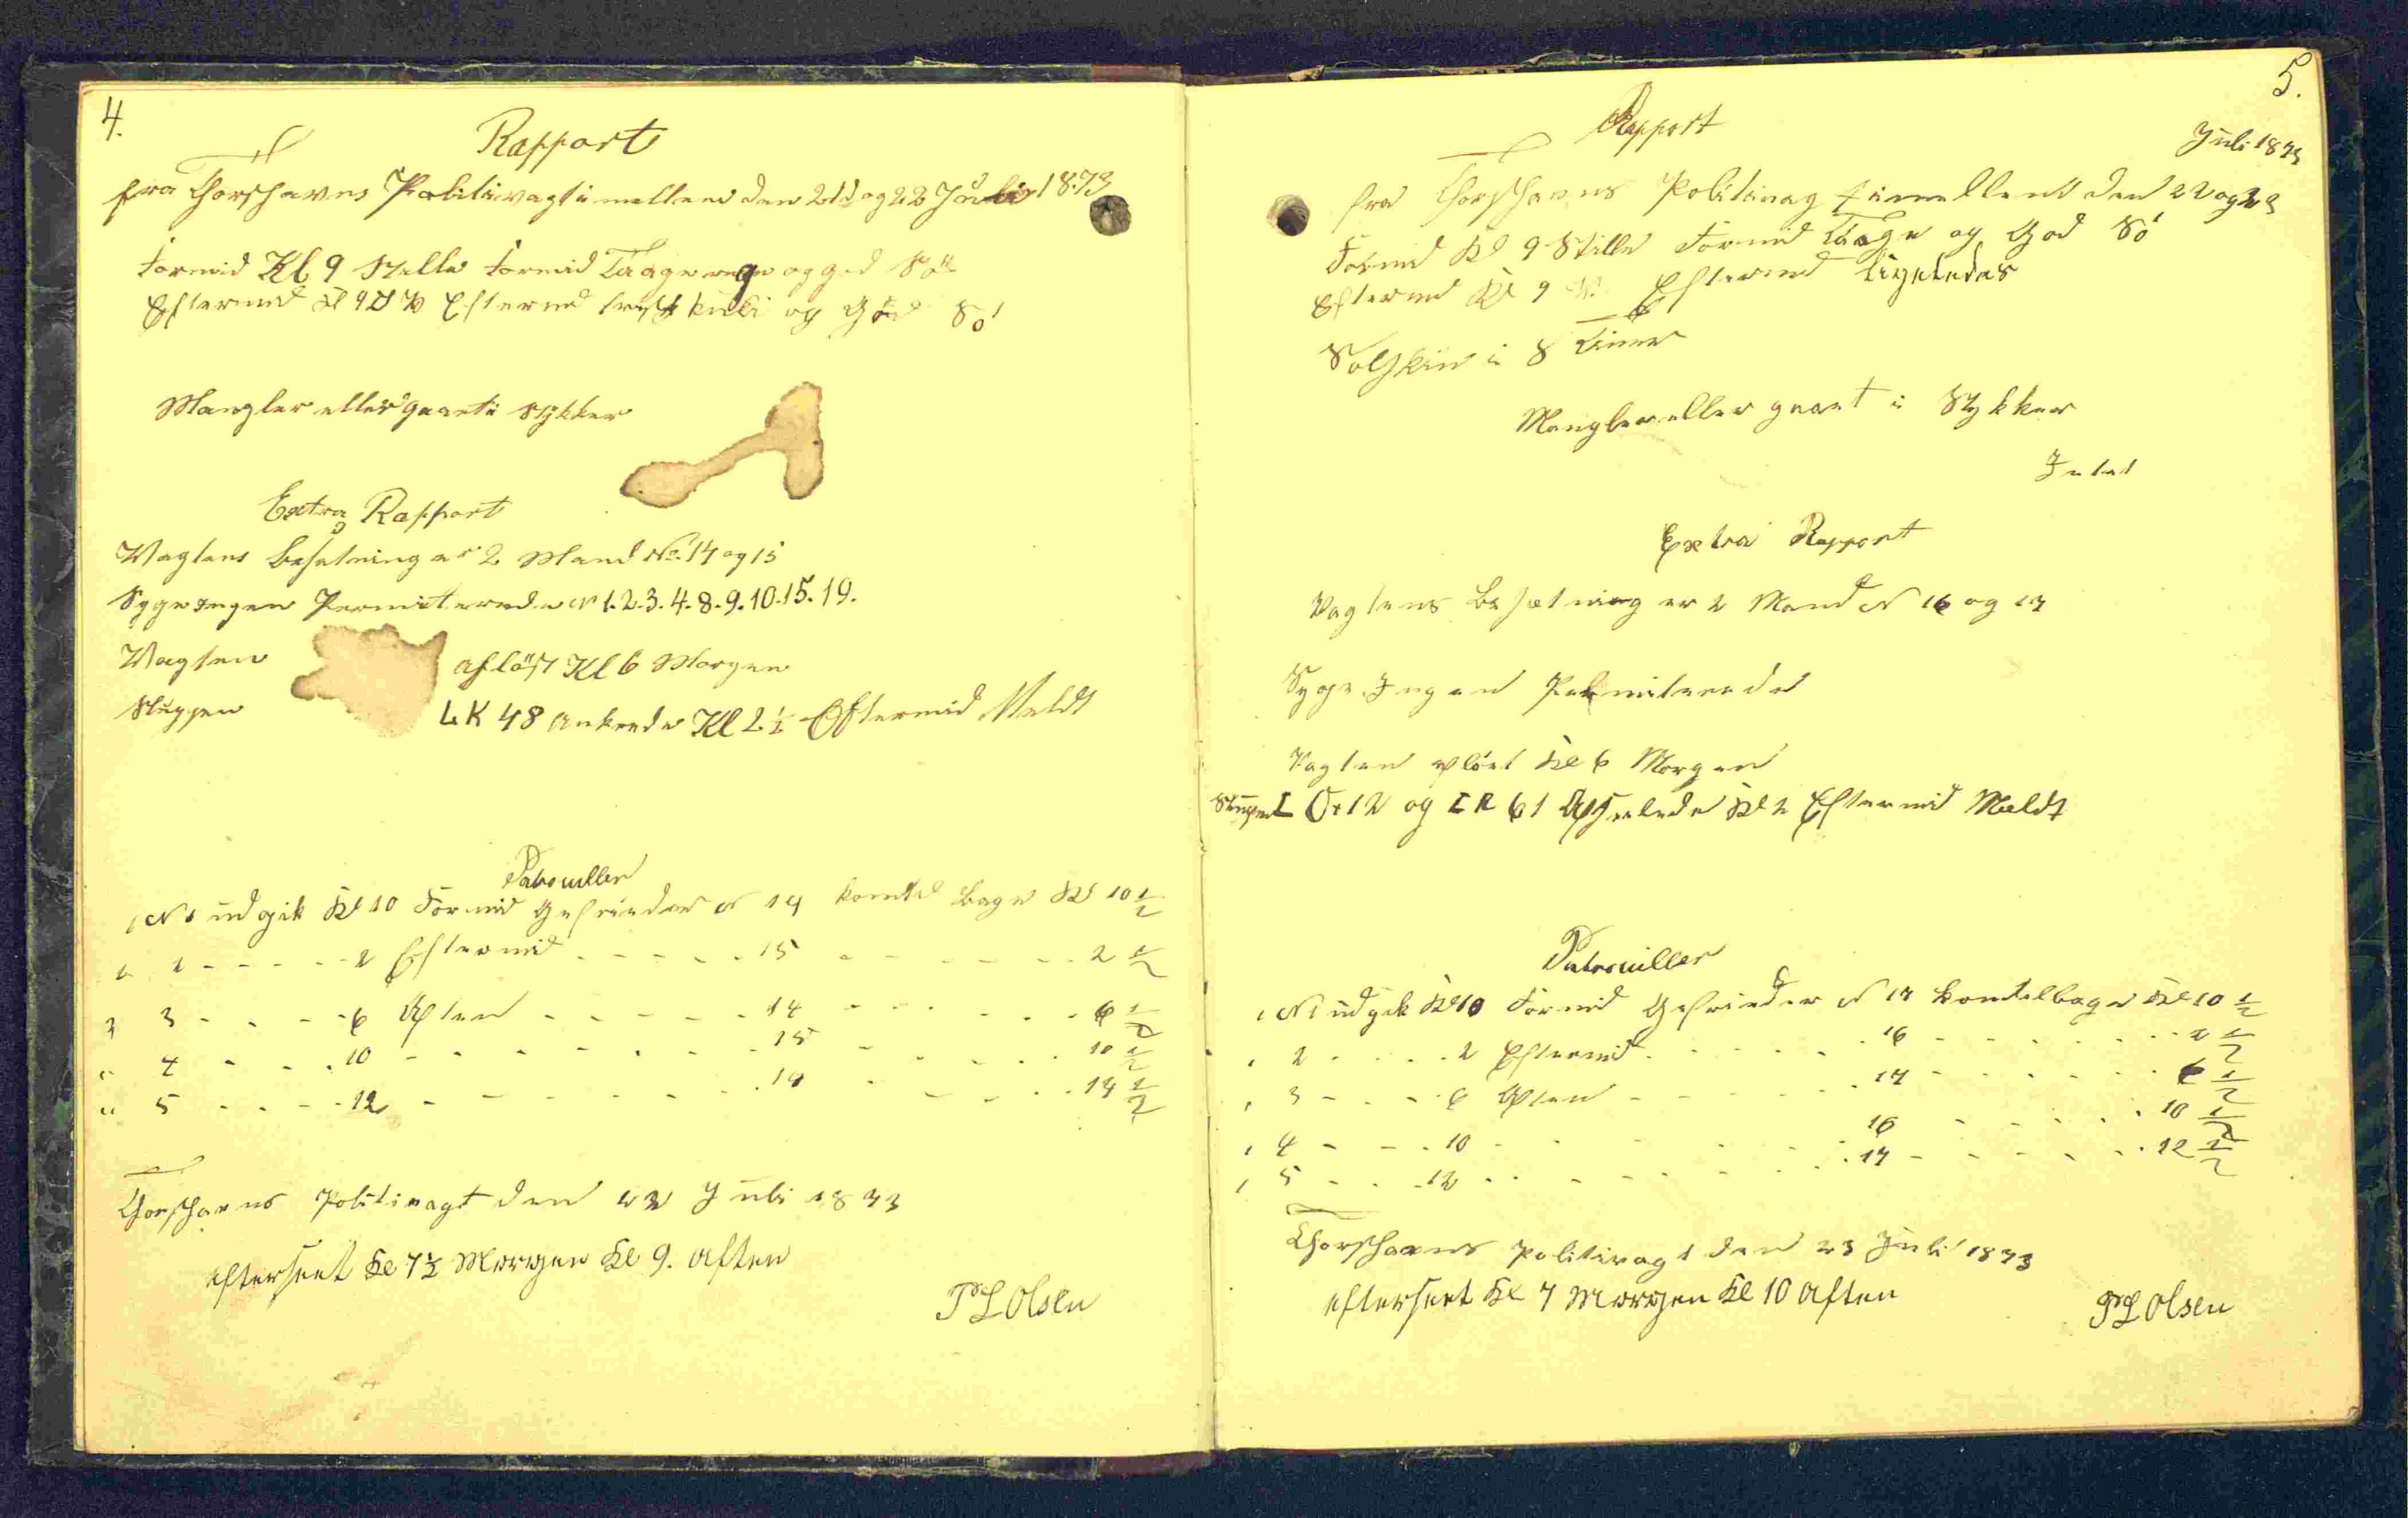 4.
Rapport
fra Thorshavns Politivagt imellem den 21d og 22 Juli 1873
Formid Kl 9 Stille Formid Taage og god Sö
Eftermid Kl 9 O Eftermid frisk kuli og God Sö
Mangler eller gaaet i Stykker
Extra Rapport
Vagtens Besetning er 2 Mand No. 14 og 15
Syge Ingen Permiterede No 1. 2. 3. 4. 8. 9. 10. 15. 19.
Vagten aflöst Kl 6 Morgen
Sluppen LK 48 Ankrede Kl 2 1/2 Eftermid Meldt
Patrouiller
1 No 1 udgik Kl 10 Formid Gefrieder No 14 kom tilbage Kl 10 1/2
" 2 - - - - - 2 Eftermid - - - - - 15 - - - - - - 2 1/2
" 3 - - - - 6 Aften - - - - - 14 - - - - - - 6 1/2
" 4 - - - 10 - - - - - - - 15 - - - - - 10 1/2
" 5 - - - - 12 - - - - - - - 14 - - - - 12 1/2
Thorshavns Politivagt den 22 Juli 1873
efterseet Kl 7 1/2 Morgen Kl 9. Aften
P L Olsen
5.
Rapport
Juli 1873
fra Thorshavns Politivagt imellem den 22 og 23
Formid Kl 9 Stille Formid Taage og God Sö
Eftermid Kl 9 Eftermid Ligeledes
Solskin i 8 Timer
Mangler eller gaaet i Stykker
Intet
Extra Rapport
Vagtens Besetning er 2 Mand No 16 og 17
Syge Ingen Permiterede
Vagten aflöst Kl 6 Morgen
Sluppen L Or 12 og LK 61 Afseilede Kl 2 Eftermid Meldt
Patrouiller
1 No 1 udgik Kl 10 Formid Gefrieder No 17 kom tilbage Kl 10 1/2
" 2 - - - - 2 Eftermid - - - - - 16 - - - - - - 2 1/2
" 3 - - - - 6 Aften - - - - - 17 - - - - - - 6 1/2
" 4 - - - 10 - - - - - - 16 - - - - - 10 1/2
" 5 - - - 12 - - - - - - - 17 - - - - - 12 1/2
Thorshavns Politivagt den 23 Juli 1873
efterseet Kl 7 Morgen Kl 10 Aften
P L Olsen